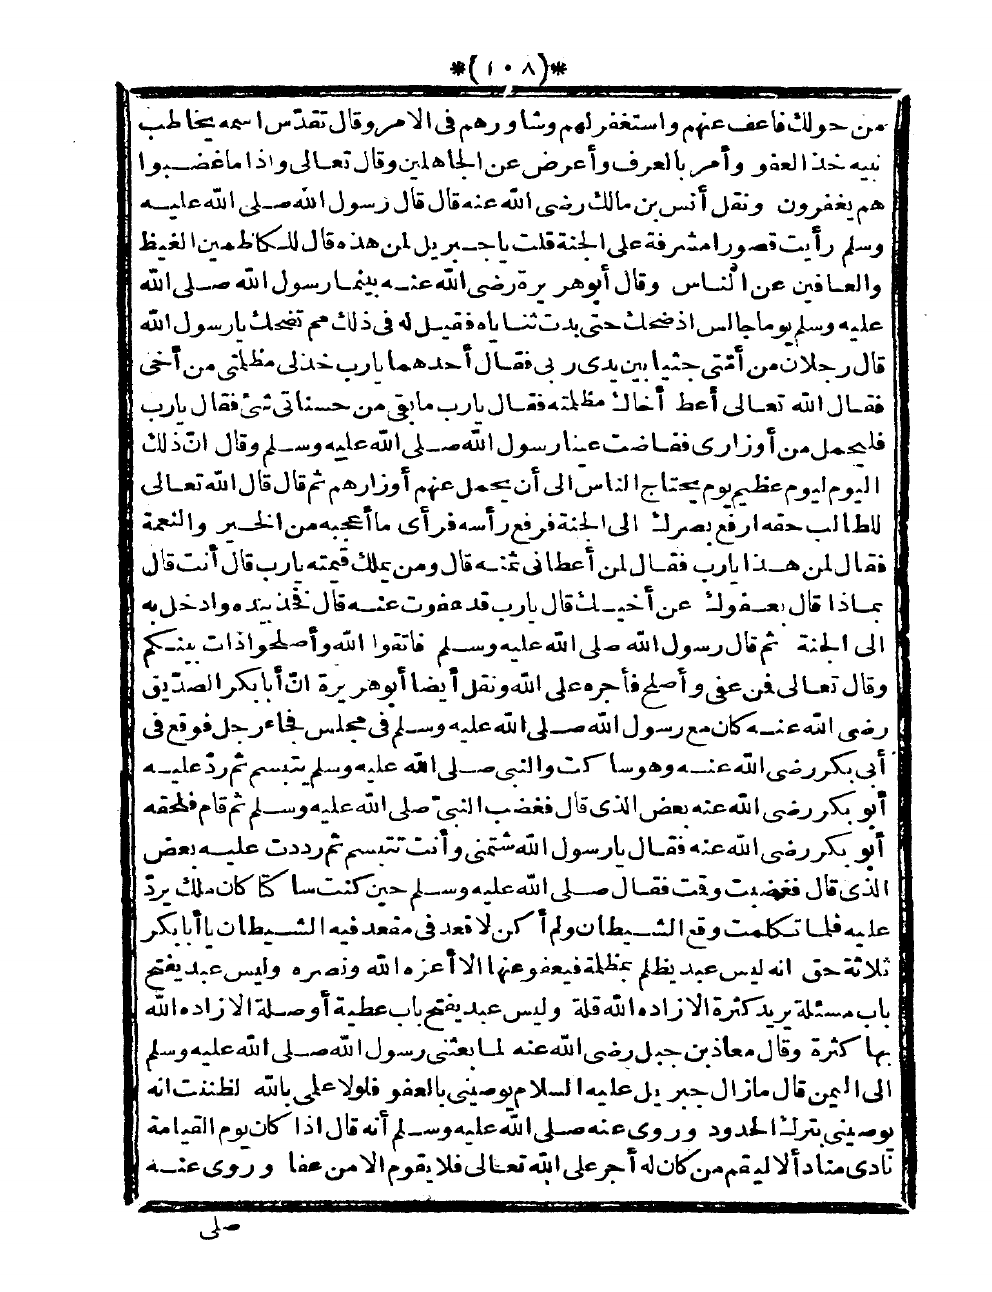 *(١٠٨)*
من حولك فاعف عنهم واستغفر لهم وشاورهم فى الامر وقال تقدّس اسمه يخاطب
نبيه خذ العفو وأمر بالعرف وأعرض عن الجاهلين وقال تعالى واذا ما غضبوا
هم يغفرون ونقل أنس بن مالك رضى الله عنه قال قال رسول الله صلى الله عليه
وسلم رأيت قصورا مشرفة على الجنة قلت يا جبريل لمن هذه قال للكاظمين الغيظ
والعافين عن الناس وقال أبو هريرة رضى الله عنه بينما رسول الله صلى الله
عليه وسلم يوما جالس اذ ضحك حتى بدت ثناياه فقيل له فى ذلك مم تضحك يا رسول الله
قال رجلان من أمّتى جثيا بين يدى ربى فقال أحدهما يا رب خذ لى مظلمتى من أخى
فقال الله تعالى أعط أخاك مظلمته فقال يا رب ما بقى من حسناتى شئ فقال يا رب
فليحمل من أوزارى ففاضت عينا رسول الله صلى الله عليه وسلم وقال انّ ذلك
اليوم ليوم عظيم يوم يحتاج الناس الى أن يحمل عنهم أوزارهم ثم قال قال الله تعالى
للطالب حقه ارفع بصرك الى الجنة فرفع رأسه فرأى ما أعجبه من الخير والنعمة
فقال لمن هذا يا رب فقال لمن أعطانى ثمنه قال ومن يملك قيمته يا رب قال أنت قال
بماذا قال بعفوك عن أخيك قال يا رب قد عفوت عنه قال فخذ بيده وادخل به
الى الجنة ثم قال رسول الله صلى الله عليه وسلم فاتقوا الله وأصلحوا ذات بينكم
وقال تعالى فمن عفى وأصلح فأجره على الله ونقل أيضا أبو هريرة انّ أبا بكر الصدّيق
رضى الله عنه كان مع رسول الله صلى الله عليه وسلم فى مجلس فجاء رجل فوقع فى
أبى بكر رضى الله عنه وهو ساكت والنبى صلى الله عليه وسلم يتبسم ثم ردّ عليه
أبو بكر رضى الله عنه بعض الذى قال فغضب النبىّ صلى الله عليه وسلم ثم قام فلحقه
أبو بكر رضى الله عنه فقال يا رسول الله شتمنى وأنت تتبسم ثم رددت عليه بعض
الذى قال فغضبت وقمت فقال صلى الله عليه وسلم حين كنت ساكتا كان ملك يردّ
عليه فلما تكلمت وقع الشيطان ولم أكن لاقعد فى مقعد فيه الشيطان يا أبا بكر
ثلاثة حق انه ليس عبد يظلم بمظلمة فيعفو عنها الا أعزه الله ونصره وليس عبد يفتح
باب مسئلة يريد كثرة الا زاده الله قلة وليس عبد يفتح باب عطية أو صلة الا زاده الله
بها كثرة وقال معاذ بن جبل رضى الله عنه لما بعثنى رسول الله صلى الله عليه وسلم
الى اليمن قال ما زال جبريل عليه السلام يوصينى بالعفو فلولا علمى بالله لظننت انه
يوصينى بترك الحدود وروى عنه صلى الله عليه وسلم أنه قال اذا كان يوم القيامة
نادى مناد ألا ليقم من كان له أجر على الله تعالى فلا يقوم الا من عفا وروى عنه
صلى